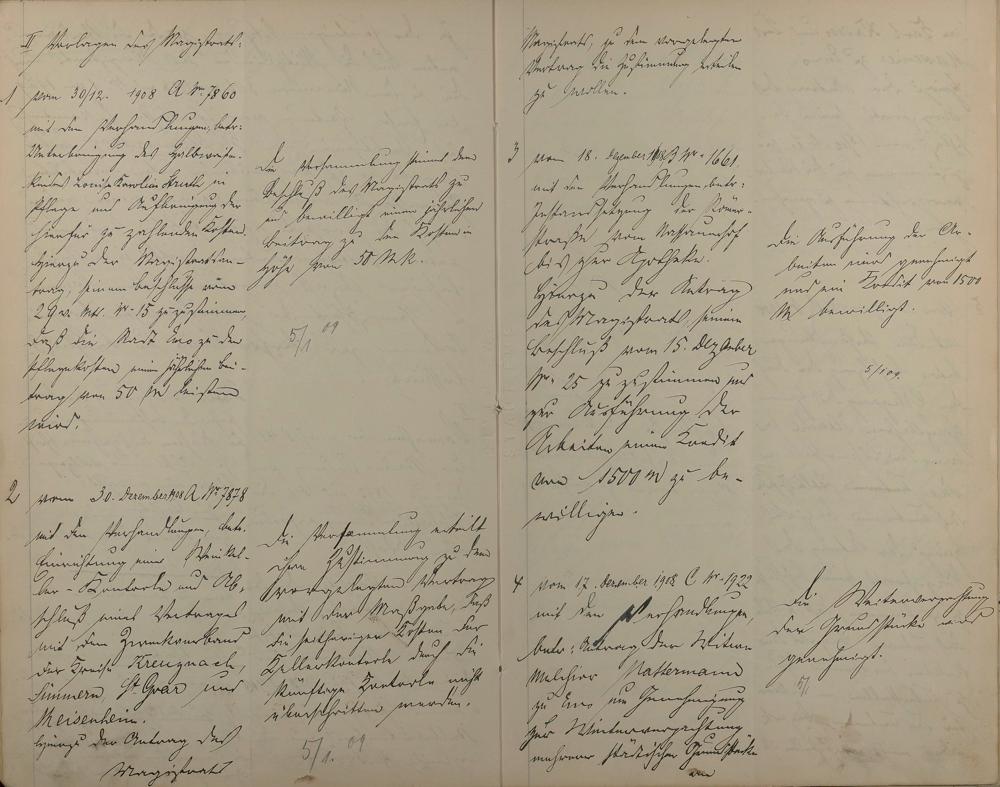 II Vorlagen des Magistrats:
1 vom 30/12. 1908 A Nr. 7860
mit den Verhandlungen, betr.
Unterbringung des Halbwaisen-
kindes Louise Karoline in
Pflege und Aufbringung der
hierfür zu zahlenden Kosten.
Hierzu der Magistratsan-
trag, seinem Beschlusse vom
29 v. Mts. Nr. 15 zuzustimmen,
daß die Stadt zu den
Pflegekosten einen jährlichen Bei-
trag von 50 M leisten
wird.
Die Versammlung stimmt dem
Beschluß des Magistrats zu
und bewilligt einen jährlichen
Beitrag zu den Kosten in
Höhe von 50 Mk.
5/1 09
2 vom 30. Dezember 1908 A Nr. 7878
mit den Verhandlungen, betr.
Einrichtung einer
Kontrole und Ab-
schluß eines Vertrages
mit dem Zweckverband
der Kreise Kreuznach,
Simmern, St. Goar und
Meisenheim.
Hierzu der Antrag des
Magistrats
Die Versammlung erteilt
ihre Zustimmung zu dem
vorgelegten Vertrag
mit der Maßgabe, daß
die seitherigen Kosten der
Kellerkontrole durch die
künftige Kontrole nicht
überschritten werden.
5/1. 09
Magistrats, zu dem vorgelegten
Vertrag die Zustimmung erteilen
zu wollen.
3 vom 18. Dezember 1908 B Nr. 1661.
mit den Verhandlungen betr:
Instandsetzung der Römer-
straße vom Nassauerhof
bis zur Apotheke.
Hierzu der Antrag
des Magistrats, seinem
Beschluß vom 15. Dezember
Nr. 25 zuzustimmen und
zur Ausführung der
Arbeiten einen Kredit
von 1500 M zu be-
willigen.
Die Ausführung der Ar-
beiten wird genehmigt
und ein Kredit von 1500
M bewilligt.
5/1 09.
4 vom 17. Dezember 1908 C Nr. 1922
mit den Verhandlungen,
betr: Antrag der Witwe
Melchior Nattermann
zu um Genehmigung
zur Weiterverpachtung
mehrerer städtischer Grundstücke
an
Die Weiterverpachtung
der Grundstücke wird
genehmigt.
5/1